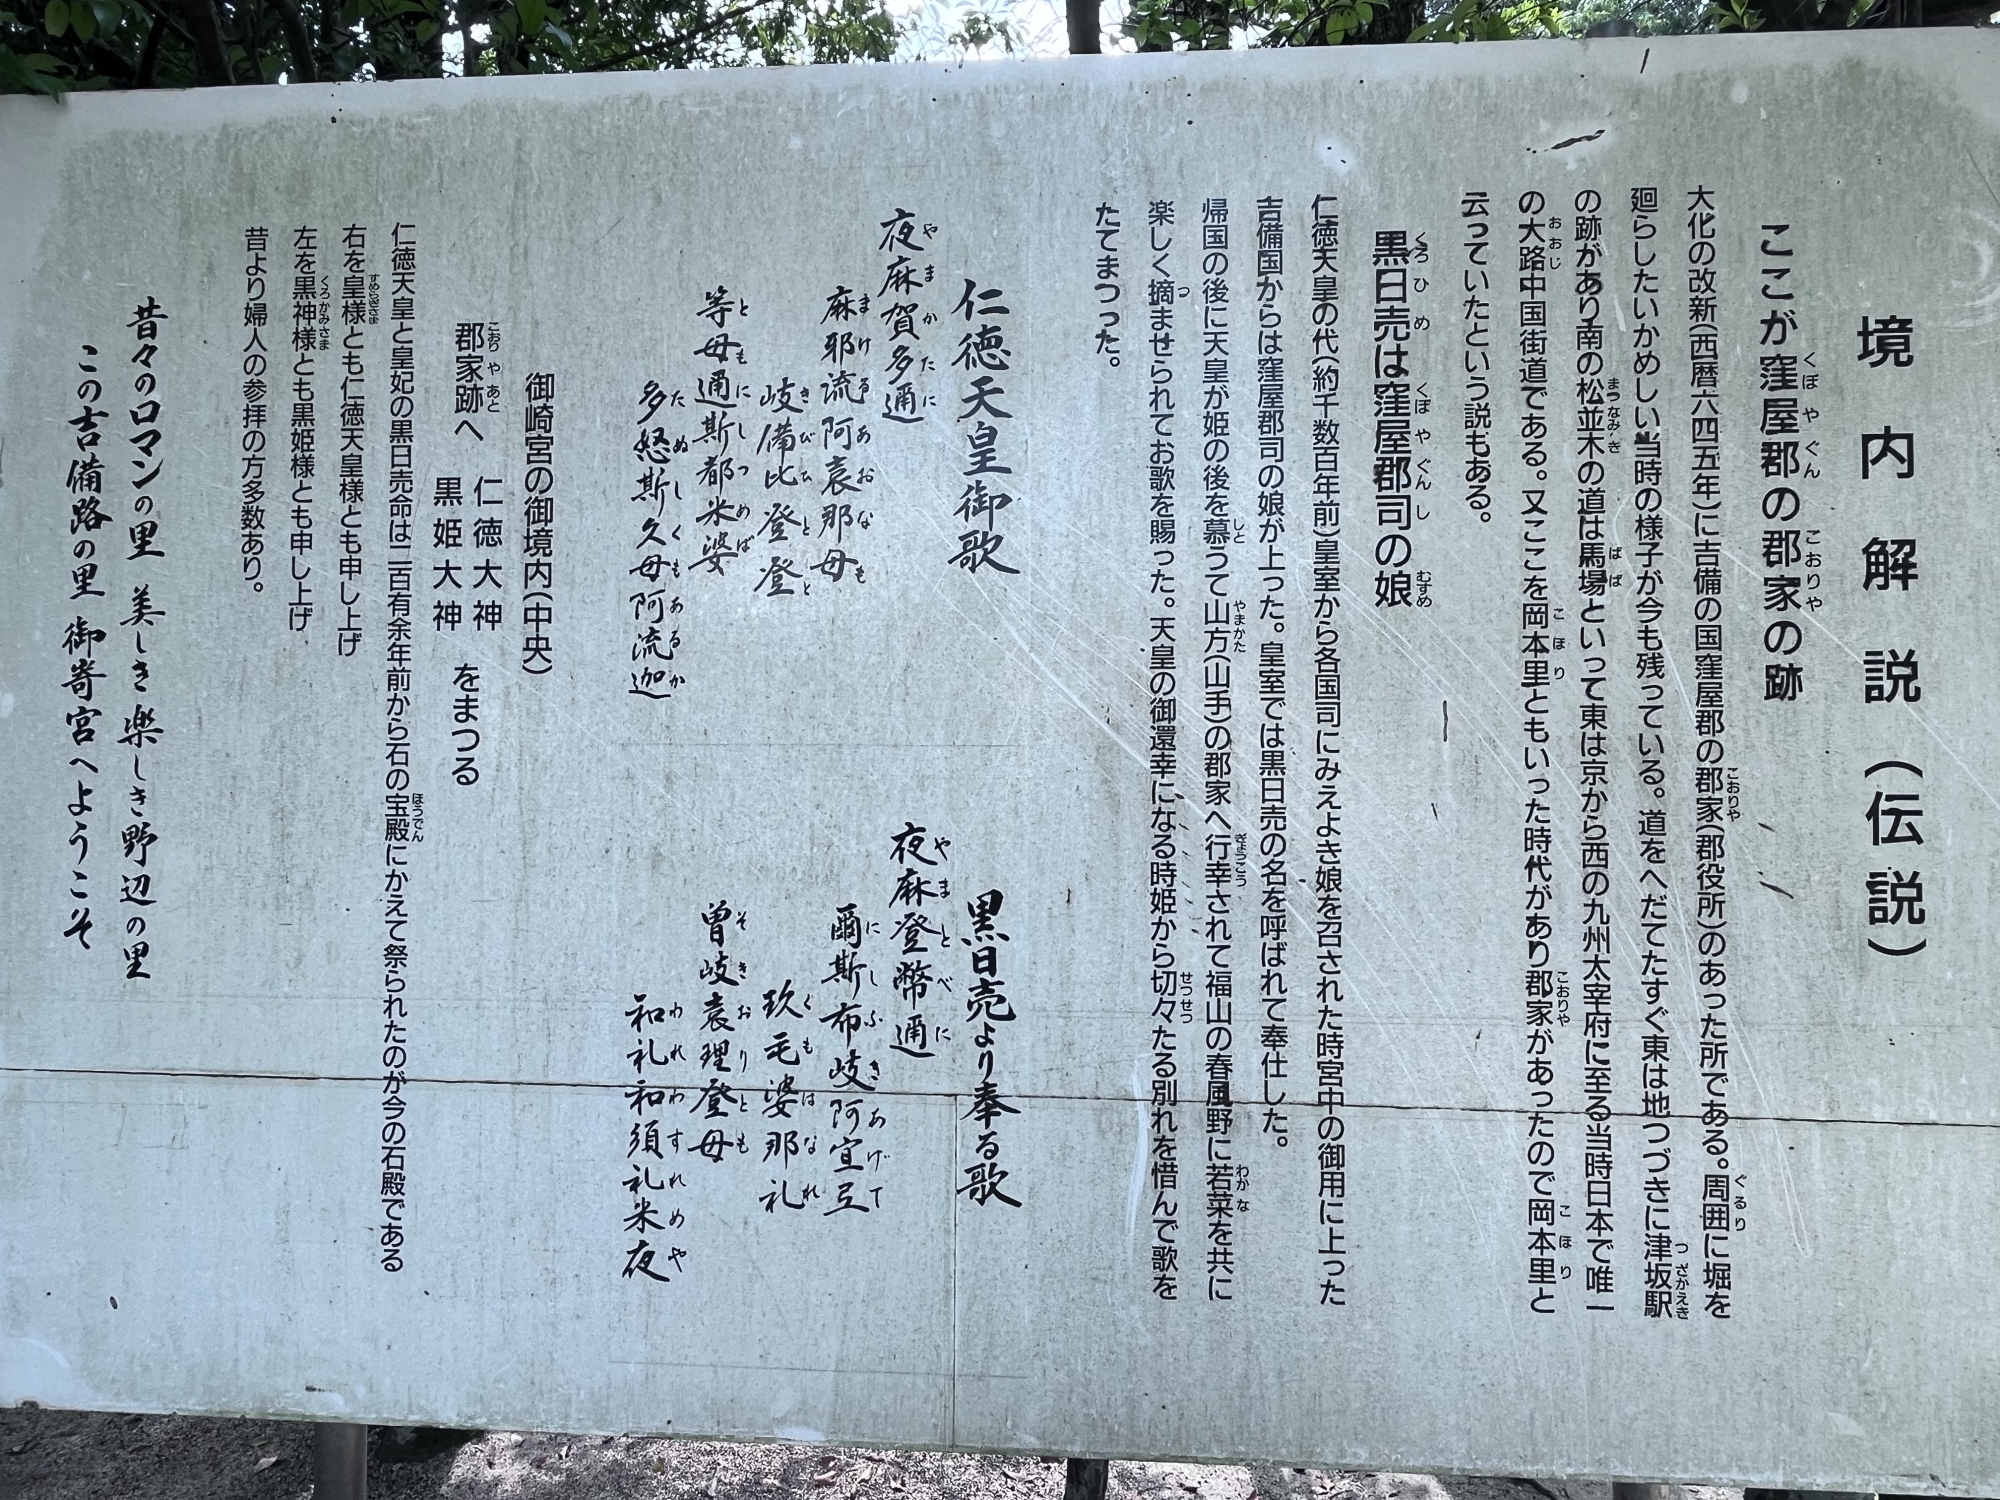 境内解説(伝説)
ここが窪屋郡の郡家の跡
大化の改新(西暦六四五年)に吉備の国窪屋郡の郡家(郡役所)のあった所である。周囲に堀を
廻らしたいかめしい当時の様子が今も残っている。道をへだてたすぐ東は地つづきに津坂駅
の跡があり南の松並木の道は馬場といって東は京から西の九州太宰府に至る当時日本で唯一
の大路中国街道である。又ここを岡本里ともいった時代があり郡家があったので岡本里と
云っていたという説もある。
黒日売は窪屋郡司の娘
仁徳天皇の代(約千数百年前)皇室から各国司にみえよき娘を召された時宮中の御用に上った
吉備国からは窪屋郡司の娘が上った。皇室では黒日売の名を呼ばれて奉仕した。
帰国の後に天皇が姫の後を慕うて山方(山手)の郡家へ行幸されて福山の春風野に若菜を共に
楽しく摘ませられてお歌を賜った。天皇の御還幸になる時姫から切々たる別れを惜んで歌を
たてまつった。
仁徳天皇御歌
夜麻賀多邇
麻耶流阿袁那母
岐備比登登
等母邇斯都米婆
多怒斯久母阿流迦
黒日売より奉る歌
夜麻登幣邇
爾斯布岐阿宜弖
玖毛婆那礼
曽岐袁理登母
和礼和須礼米夜
御崎宮の御境内(中央)
郡家跡へ 仁徳大神 黒姫大神 をまつる
仁徳天皇と皇妃の黒日売命は二百有余年前から石の宝殿にかえて祭られたのが今の石殿である
右を皇様とも仁徳天皇様とも申し上げ
左を黒神様とも黒姫様とも申し上げ
昔より婦人の参拝の方多数あり。
昔々のロマンの里 美しき楽しき野辺の里
この吉備路の里 御嵜宮へようこそ